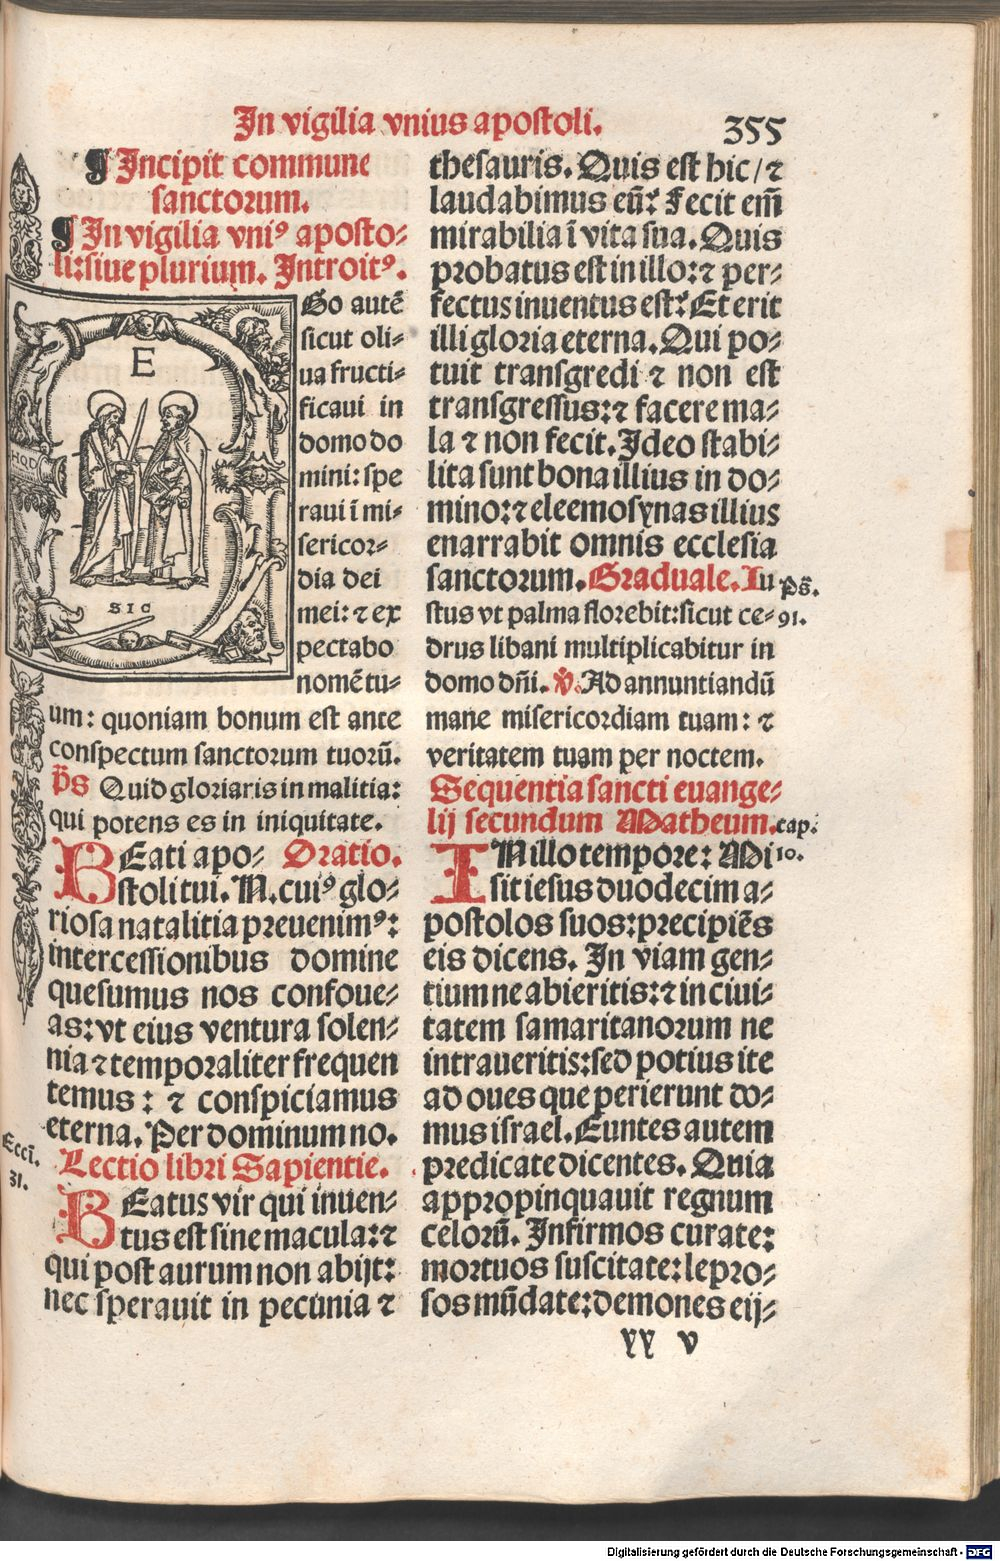 In vigilia vnius apostoli.
355
¶ Incipit commune
sanctorum.
¶ In vigilia vniꝰ aposto⸗
li: siue plurium. Introitꝰ.
E
HOD
SIC
Go autē
sicut oli⸗
ua fructi⸗
ficaui in
domo do
mini: spe
raui ī mi⸗
sericor⸗
dia dei
mei: ⁊ ex
pectabo
nomē tu⸗
um: quoniam bonum est ante
conspectum sanctorum tuorū.
p̄s Quid gloriaris in malitia:
qui potens es in iniquitate.
BEati apo⸗ Oratio.
stoli tui. N. cuiꝰ glo⸗
riosa natalitia preuenimꝰ:
intercessionibus domine
quesumus nos confoue⸗
as: vt eius ventura solen⸗
nia ⁊ temporaliter frequen
temus: ⁊ conspiciamus
eterna. Per dominum no.
Lectio libri Sapientie.
Eccī.
31.
BEatus vir qui inuen⸗
tus est sine macula: ⁊
qui post aurum non abijt:
nec sperauit in pecunia ⁊
thesauris. Quis est hic/ ⁊
laudabimus eū: Fecit em̄
mirabilia ī vita sua. Quis
probatus est in illo: ⁊ per⸗
fectus inuentus est: Et erit
illi gloria eterna. Qui po⸗
tuit transgredi ⁊ non est
transgressus: ⁊ facere ma⸗
la ⁊ non fecit. Ideo stabi⸗
lita sunt bona illius in do⸗
mino: ⁊ eleemosynas illius
enarrabit omnis ecclesia
sanctorum. Graduale. Iu
ps̄.
stus vt palma florebit: sicut ce⸗
91.
drus libani multiplicabitur in
domo dn̄i. ℣. Ad annuntiandū
mane misericordiam tuam: ⁊
veritatem tuam per noctem.
Sequentia sancti euange⸗
lij secundum Matheum.
cap.
IN illo tempore: Mi
10.
sit iesus duodecim a⸗
postolos suos: precipiēs
eis dicens. In viam gen⸗
tium ne abieritis: ⁊ in ciui⸗
tatem samaritanorum ne
intraueritis: sed potius ite
ad oues que perierunt do⸗
mus israel. Euntes autem
predicate dicentes. Quia
appropinquauit regnum
celorū. Infirmos curate:
mortuos suscitate: lepro⸗
sos mūdate: demones eij⸗
yy v
Digitalisierung gefördert durch die Deutsche Forschungsgemeinschaft - DFG